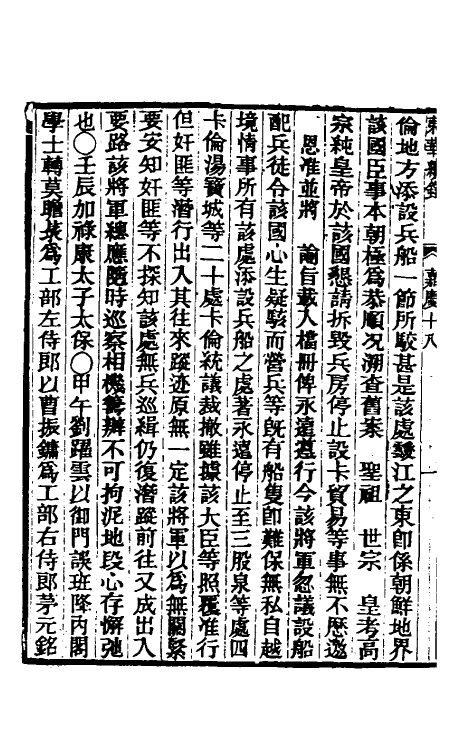 東華續錄　嘉慶十八
倫地方添設兵船一節所駁甚是該處靉江之東卽係朝鮮地界
該國臣事本朝極爲恭順况溯查舊案　聖祖　世宗　皇考高
宗純皇帝於該國懇請拆毀兵房停止設卡貿易等事無不歷邀
恩准並將　諭旨載入檔冊俾永遠遵行今該將軍忽議設船
配兵徒令該國心生疑駭而營兵等旣有船隻卽難保無私自越
境情事所有該處添設兵船之處著永遠停止至三股泉等處四
卡倫湯寶城等二十處卡倫統議裁撤雖據該大臣等照覆准行
但奸匪等潛行出入其往來蹤迹原無一定該將軍以爲無關緊
要安知奸匪等不探知該處無兵巡緝仍復潛蹤前往又成出入
要路該將軍總應隨時巡察相機籌辦不可拘泥地段心存懈弛
也○壬辰加祿康太子太保○甲午劉躍雲以御門誤班降內閣
學士轉莫瞻菉爲工部左侍郎以曹振鏞爲工部右侍郎茅元銘